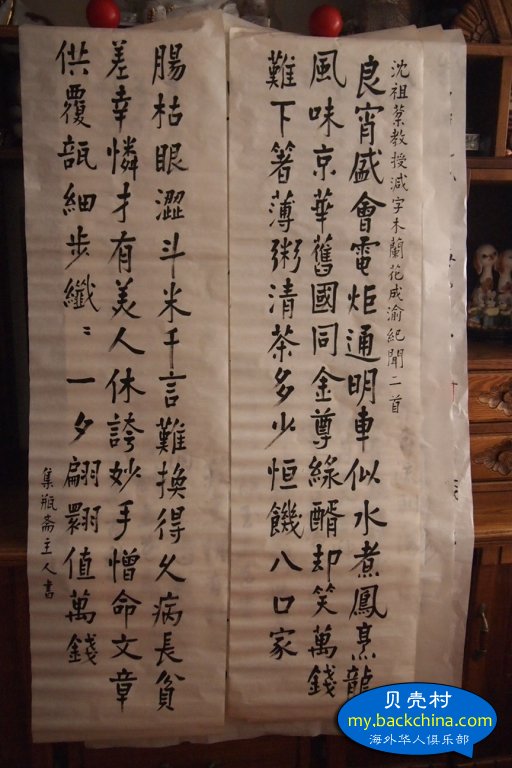 沈祖棻教授減字木蘭花成渝紀聞二首
良宵盛會電炬通明車似水煮鳳烹龍
風味京華舊國同金尊綠醑却笑萬錢
難下箸薄粥清茶多少恒饑八口家
腸枯眼澀斗米千言難換得久病長貧
差幸憐才有美人休誇妙手憎命文章
供覆瓿細步纖〻一夕翩翾值萬錢
集瓶斋主人書
贝壳村
my.backchina.com
海外华人俱乐部